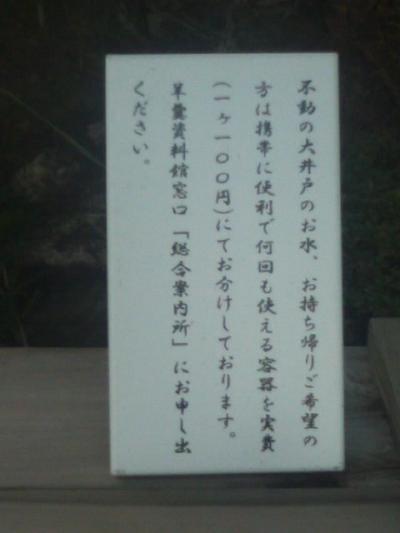 不動の大井戸のお水、お持ち帰りご希望の
方は携帯に便利で何回も使える容器を実費
(一ヶ一〇〇円)にてお分けしております。
羊羹資料館窓口「総合案内所」にお申し出
ください。